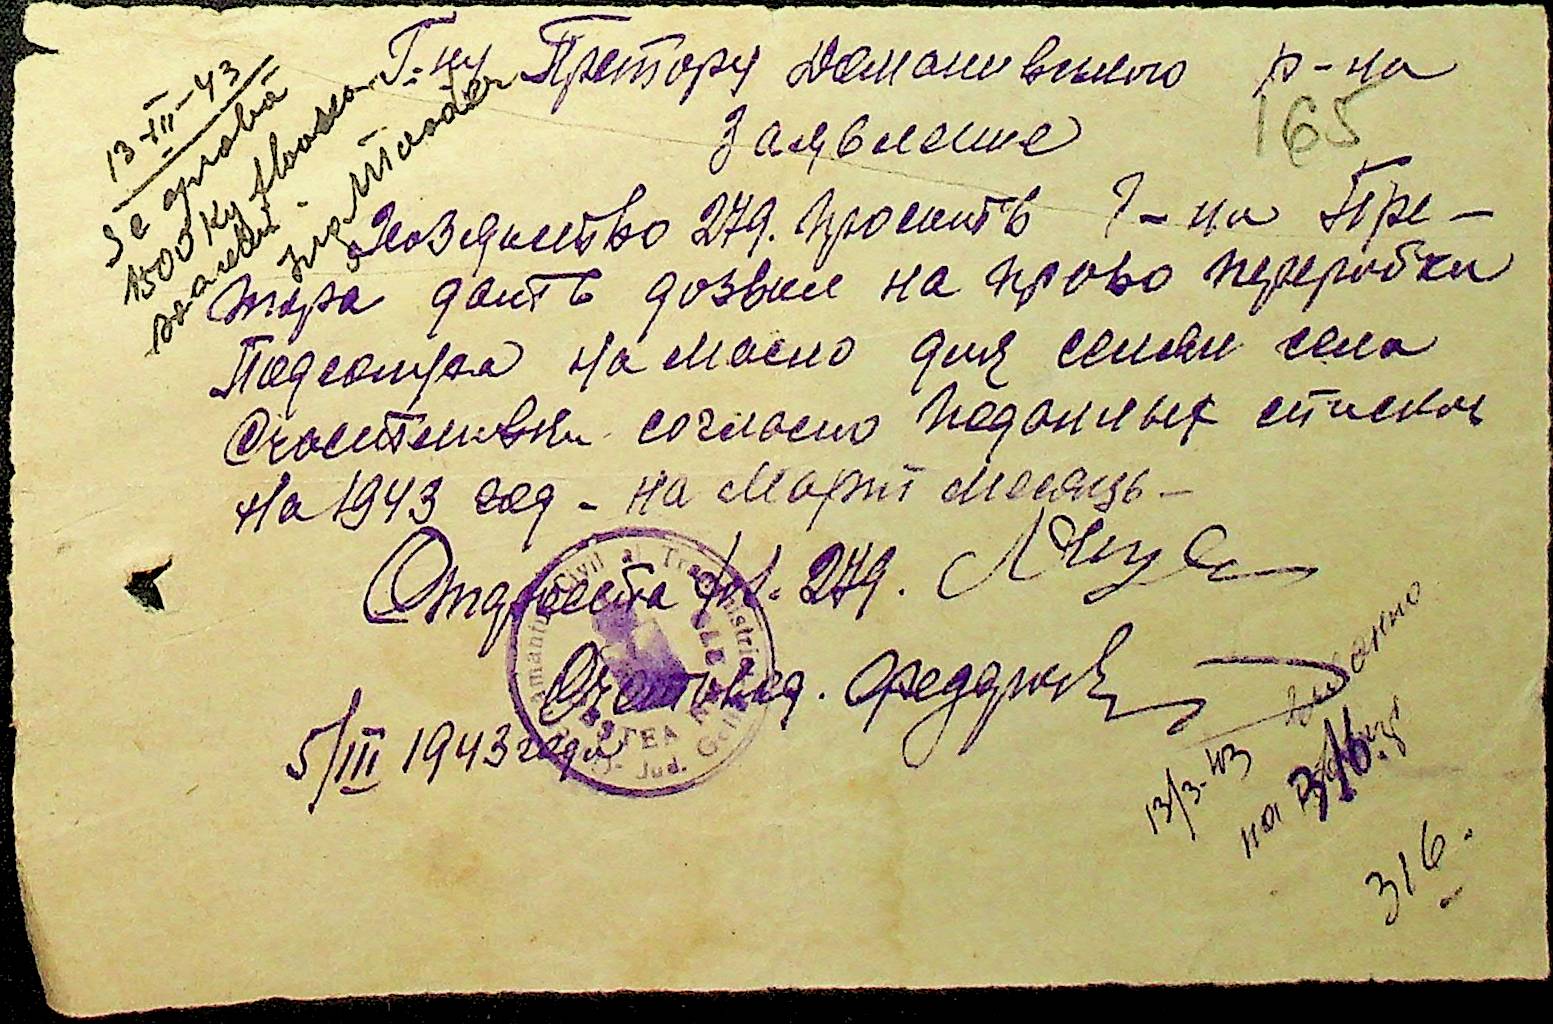 13-III-43
Se aprobă
1500 Kg floarea
Г-ну Претору Доманивського р-на
165
Заявление
Хозяйство 279. просить Г-на Пре-
тора дать дозвил на право переробки
Подсолуха на масло для семян села
Счастливки согласно поданных списков
на 1943 год - на Март месяць -
Отароста х/з. 279.
Счетовод.
5/III 1943 года
Civil al Transnistriei
Jud.
13/3-43
на
316.